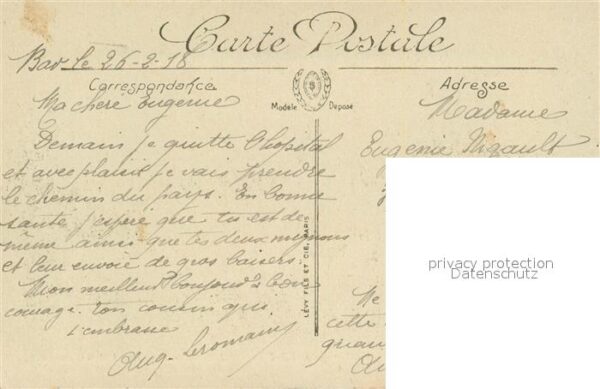 Carte Postale
Bar le 26-2-18
Correspondance
Ma chere Eugenie
Demain je quitte l'hopital
et avec plaisir je vais prendre
le chemin du pays. En bonne
santé j'espere que tu est de
même ainsi que tes deux mignons
et leur envoie de gros baisers.
Mon meilleur bonjour & bon
courage. ton cousin qui
t'embrasse
Aug. Leromain
Modèle Déposé
LÉVY FILS ET CIE, PARIS
Adresse
Madame
Eugenie
Me
cette
privacy protection
Datenschutz